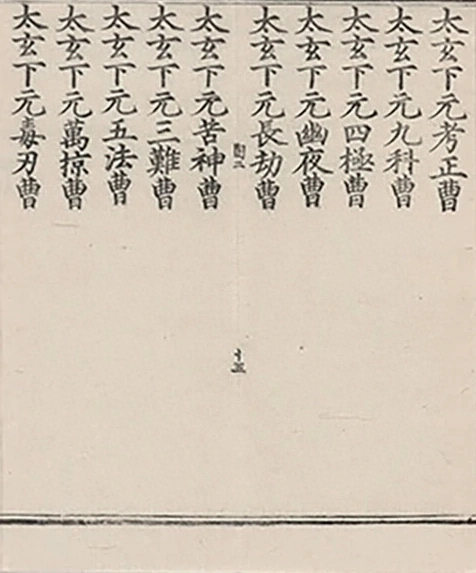 太玄下元考正曹
太玄下元九科曹
太玄下元四極曹
太玄下元幽夜曹
太玄下元長劫曹
太玄下元苦神曹
太玄下元三難曹
太玄下元五法曹
太玄下元萬掠曹
太玄下元毒刃曹